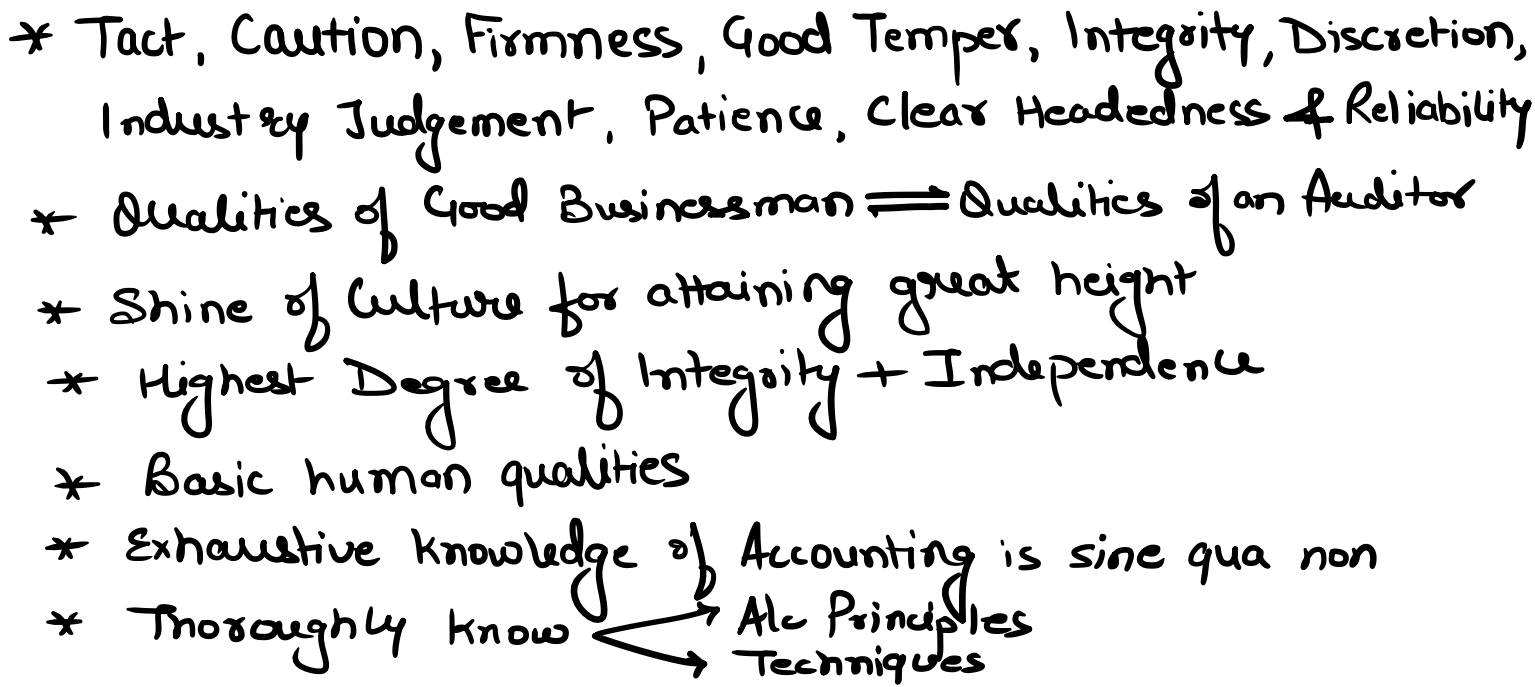 * Tact, Caution, Firmness, Good Temper, Integrity, Discretion,
Industry Judgement, Patience, Clear Headedness & Reliability
* Qualities of Good Businessman = Qualities of an Auditor
* Shine of Culture for attaining great height
* Highest Degree of Integrity + Independence
* Basic human qualities
* Exhaustive knowledge of Accounting is sine qua non
* Thoroughly know → A/c Principles
→ Techniques